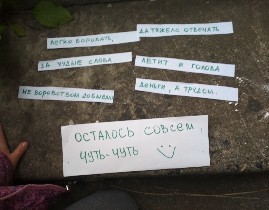 ЛЕГКО ВОРОВАТЬ,
ДА ТЯЖЕЛО ОТВЕЧАТЬ
ЗА ХУДЫЕ СЛОВА
ЛЕТИТ И ГОЛОВА
НЕ ВОРОВСТВОМ ДОБЫВАЙ
ДЕНЬГИ, А ТРУДОМ.
ОСТАЛОСЬ СОВСЕМ
ЧУТЬ-ЧУТЬ